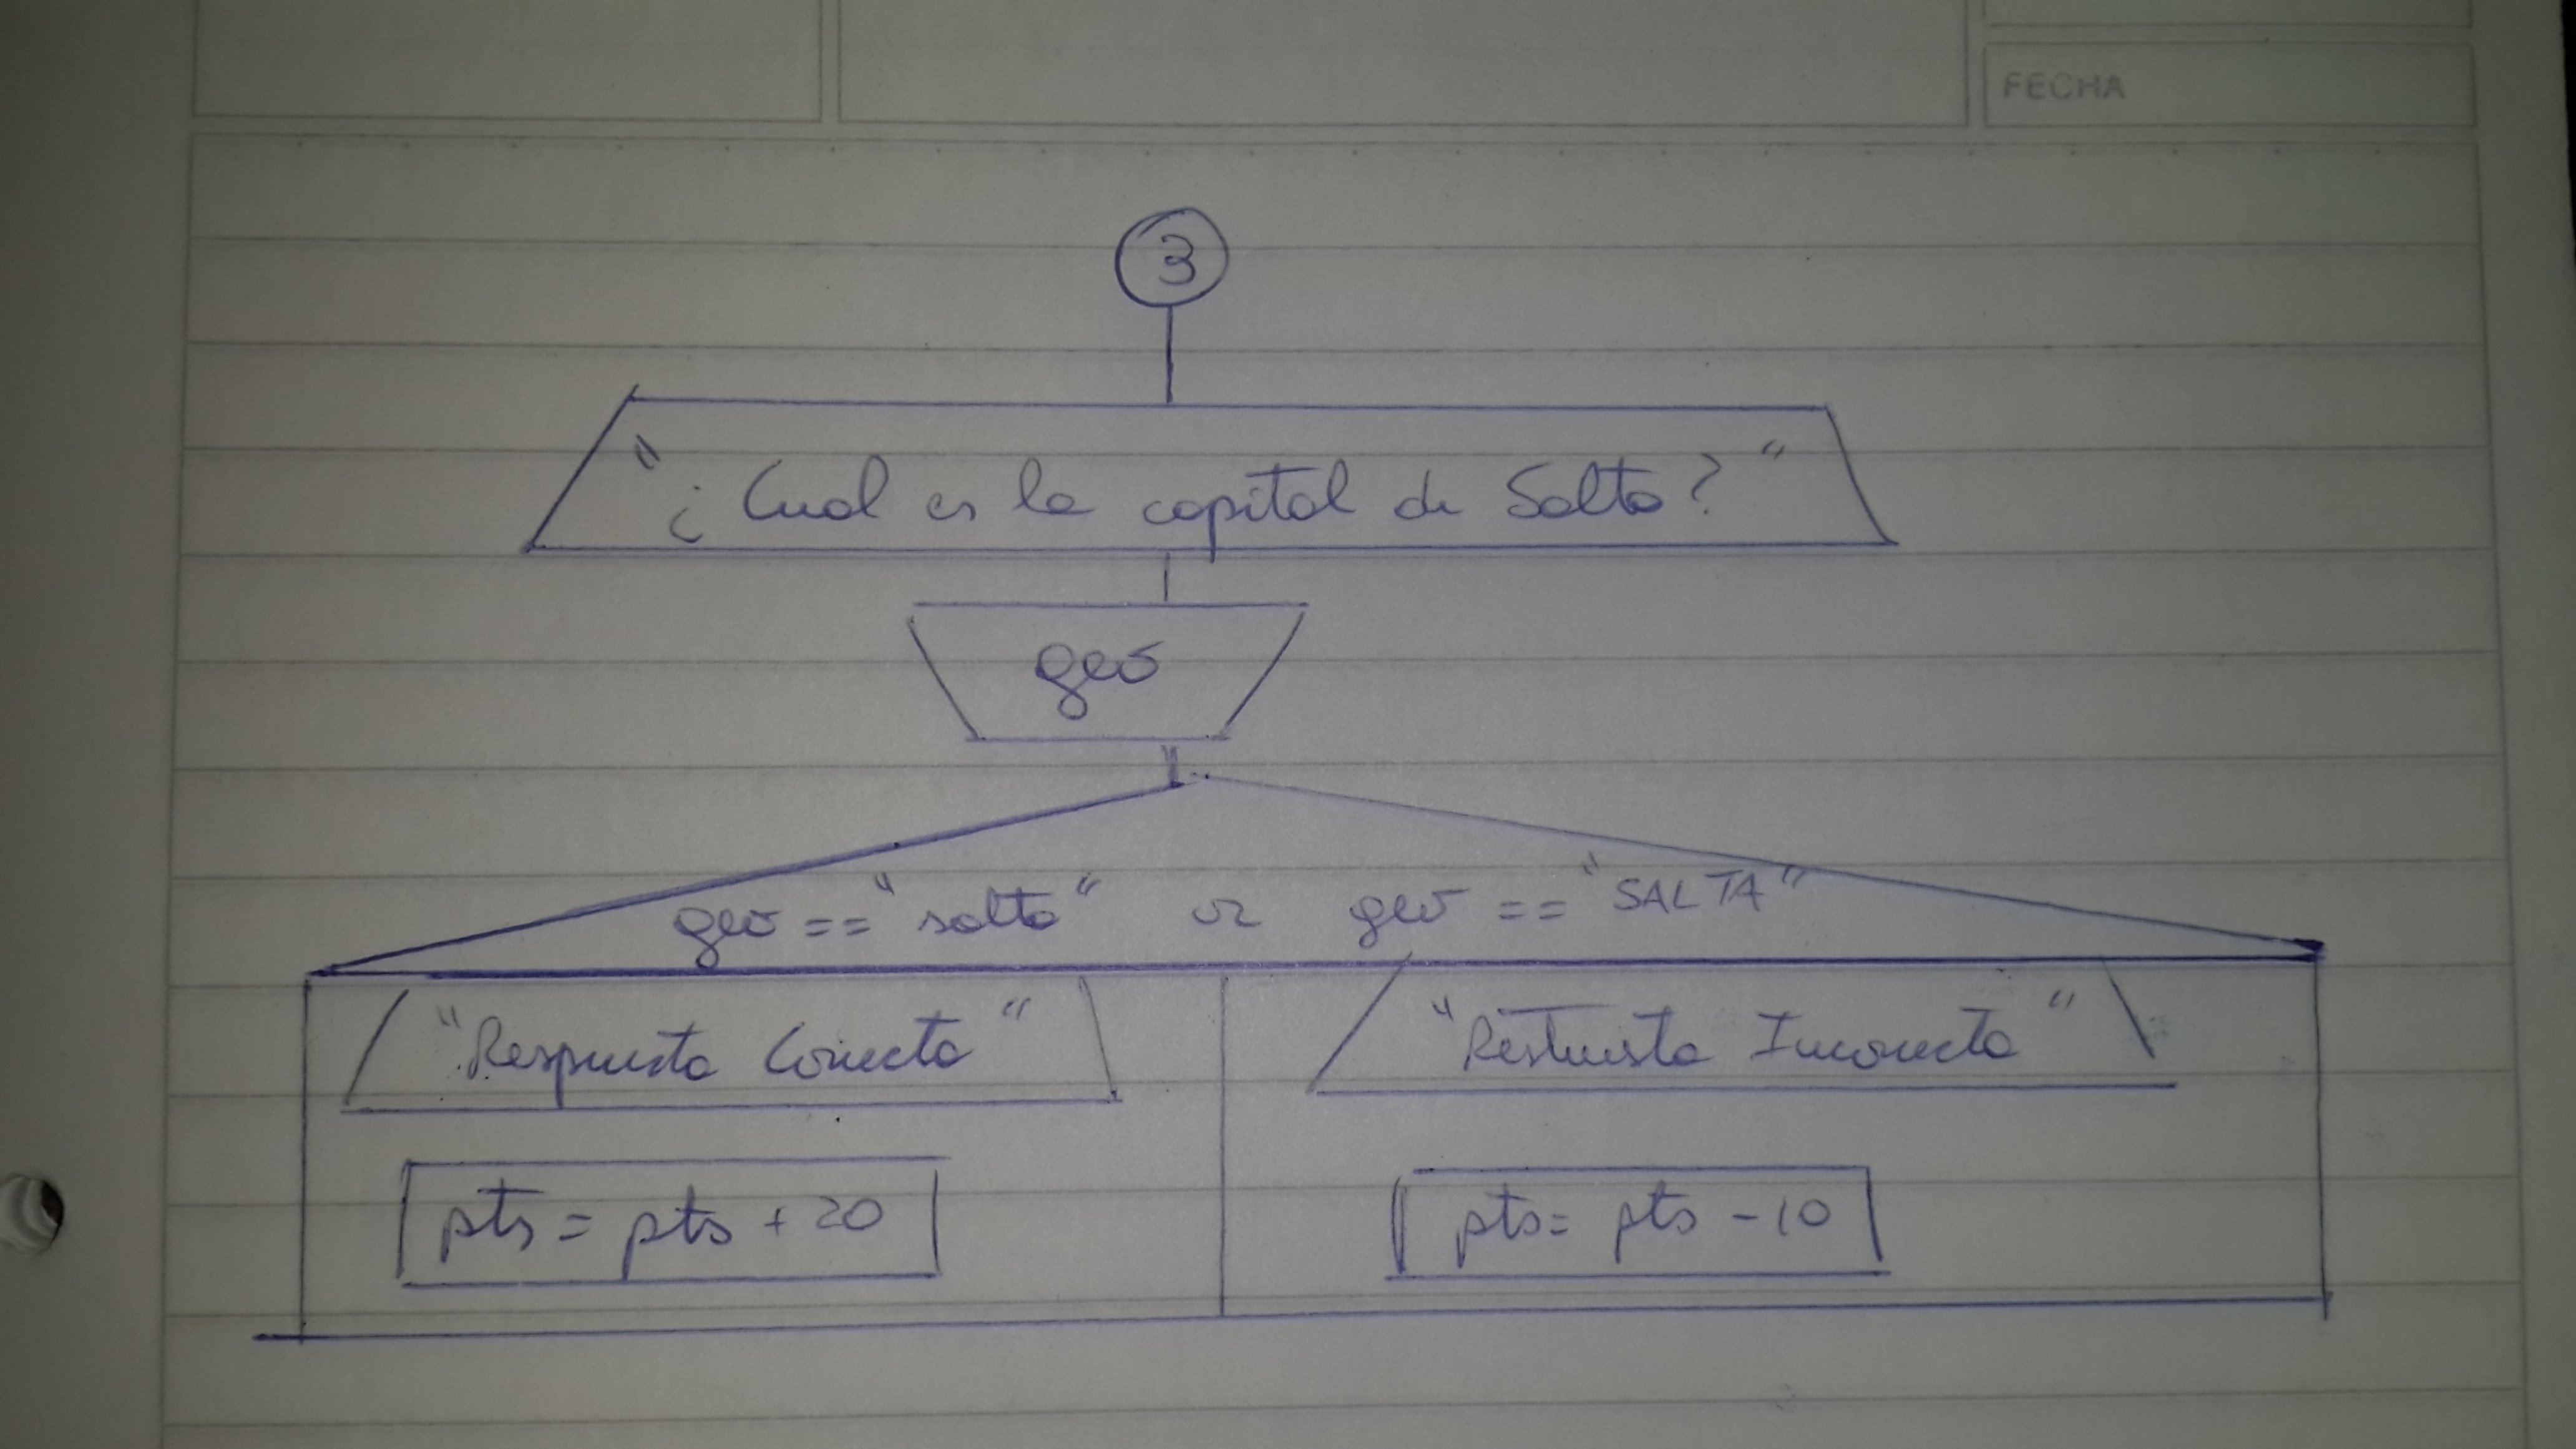 FECHA
3
"¿Cual es la capital de Salta?"
geo
geo == "salta" or geo == "SALTA"
"Respuesta Correcta" "Respuesta Incorrecta"
pts = pts + 20 pts = pts - 10